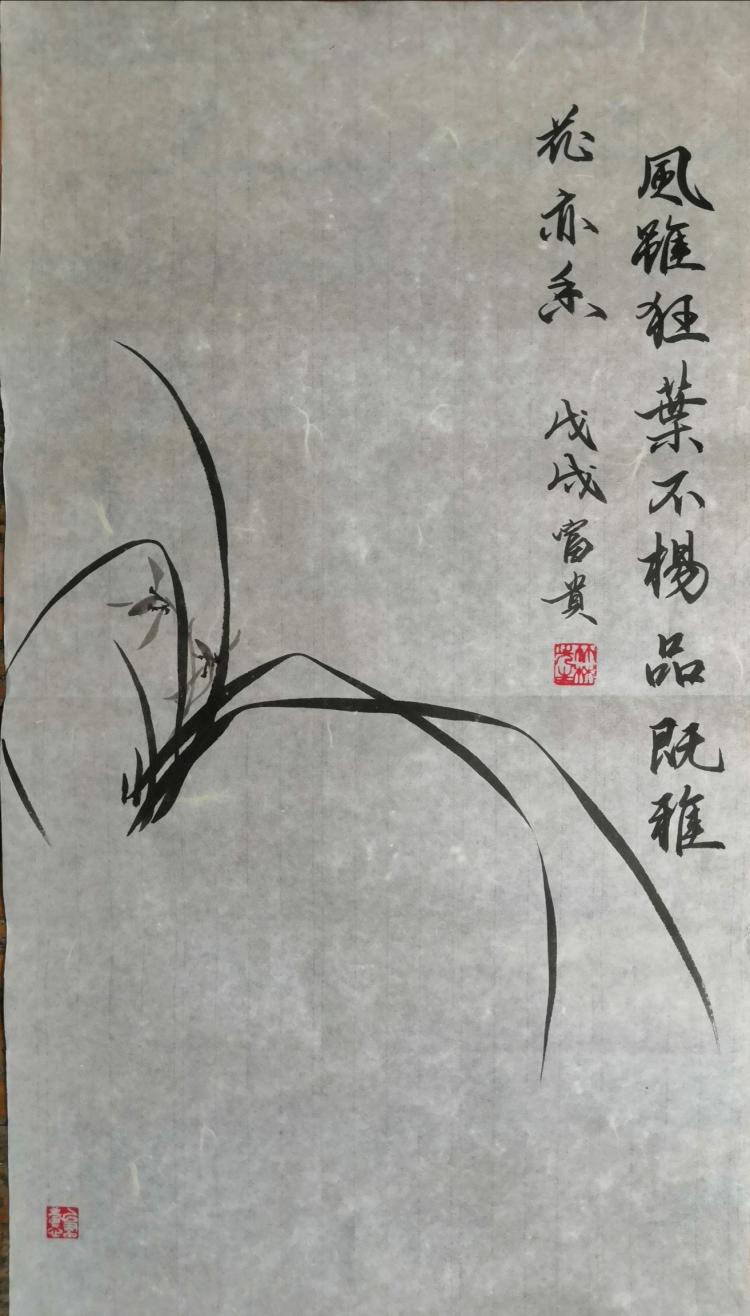 風雖狂葉不楊品既雅
花亦香
戊戌富贵